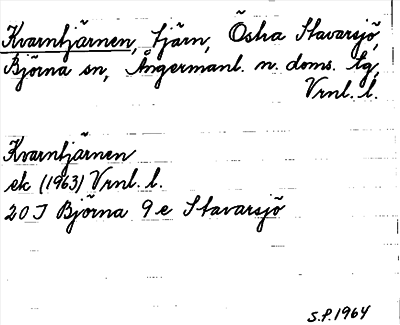 Kvarntjärnen, tjärn, Östra Stavarsjö,
Björna sn, Ångermanl. n. doms. lg,
Vrnl. l.
Kvarntjärnen
ek (1963) Vrnl. l.
20 J Björna 9 e Stavarsjö
S.P. 1964